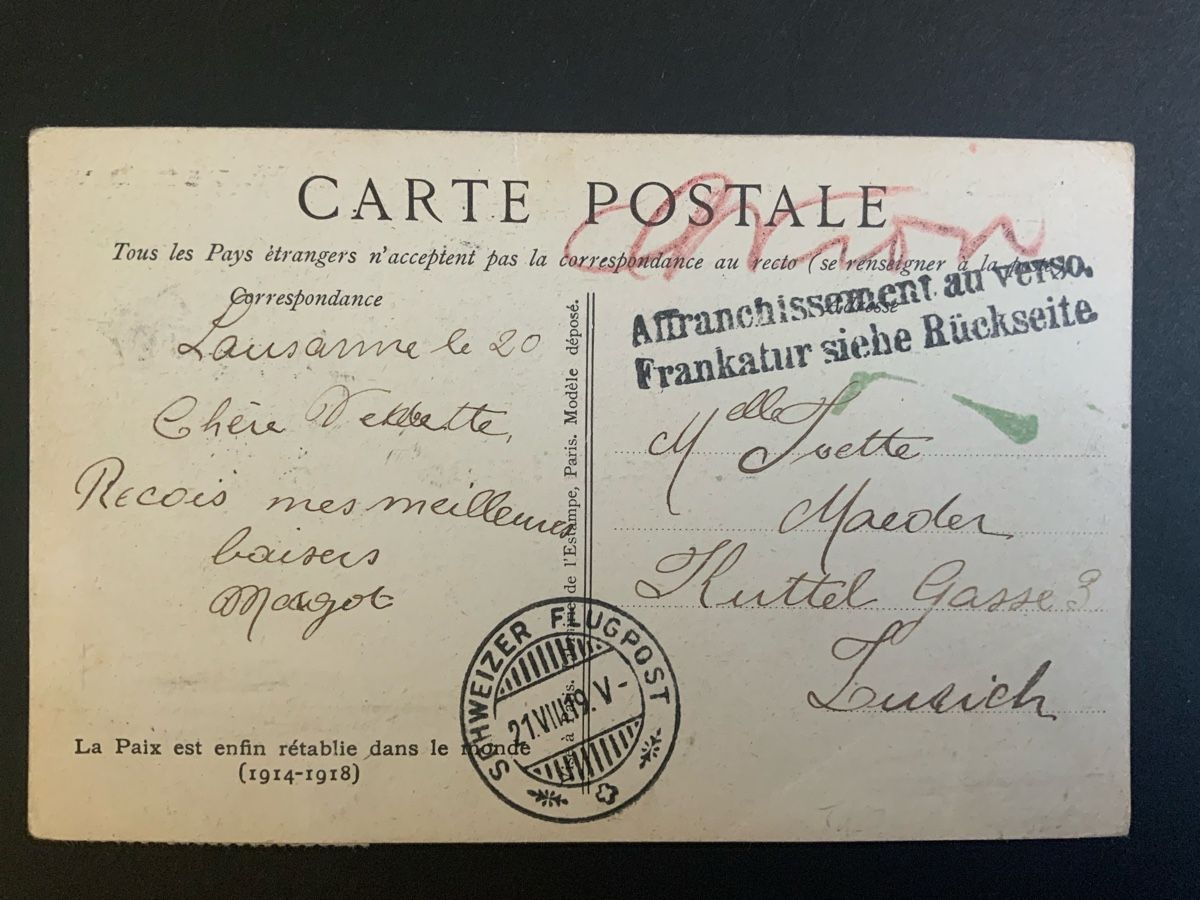 CARTE POSTALE
Avion
Tous les Pays ètrangers n'acceptent pas la correspondance au recto (se renseigner à la poste)
Correspondance
Adresse
Affranchissement au verso.
Frankatur siehe Rückseite.
Lausanne le 20
Chère
Recois mes meilleures
baisers
Margot
de l'Estampe, Paris. Modèle déposé.
Melle Ivette
Maeder
Kuttel Gasse 3
Zurich
SCHWEIZER FLUGPOST
21.VIII.19.V-
La Paix est enfin rétablie dans le monde
(1914-1918)